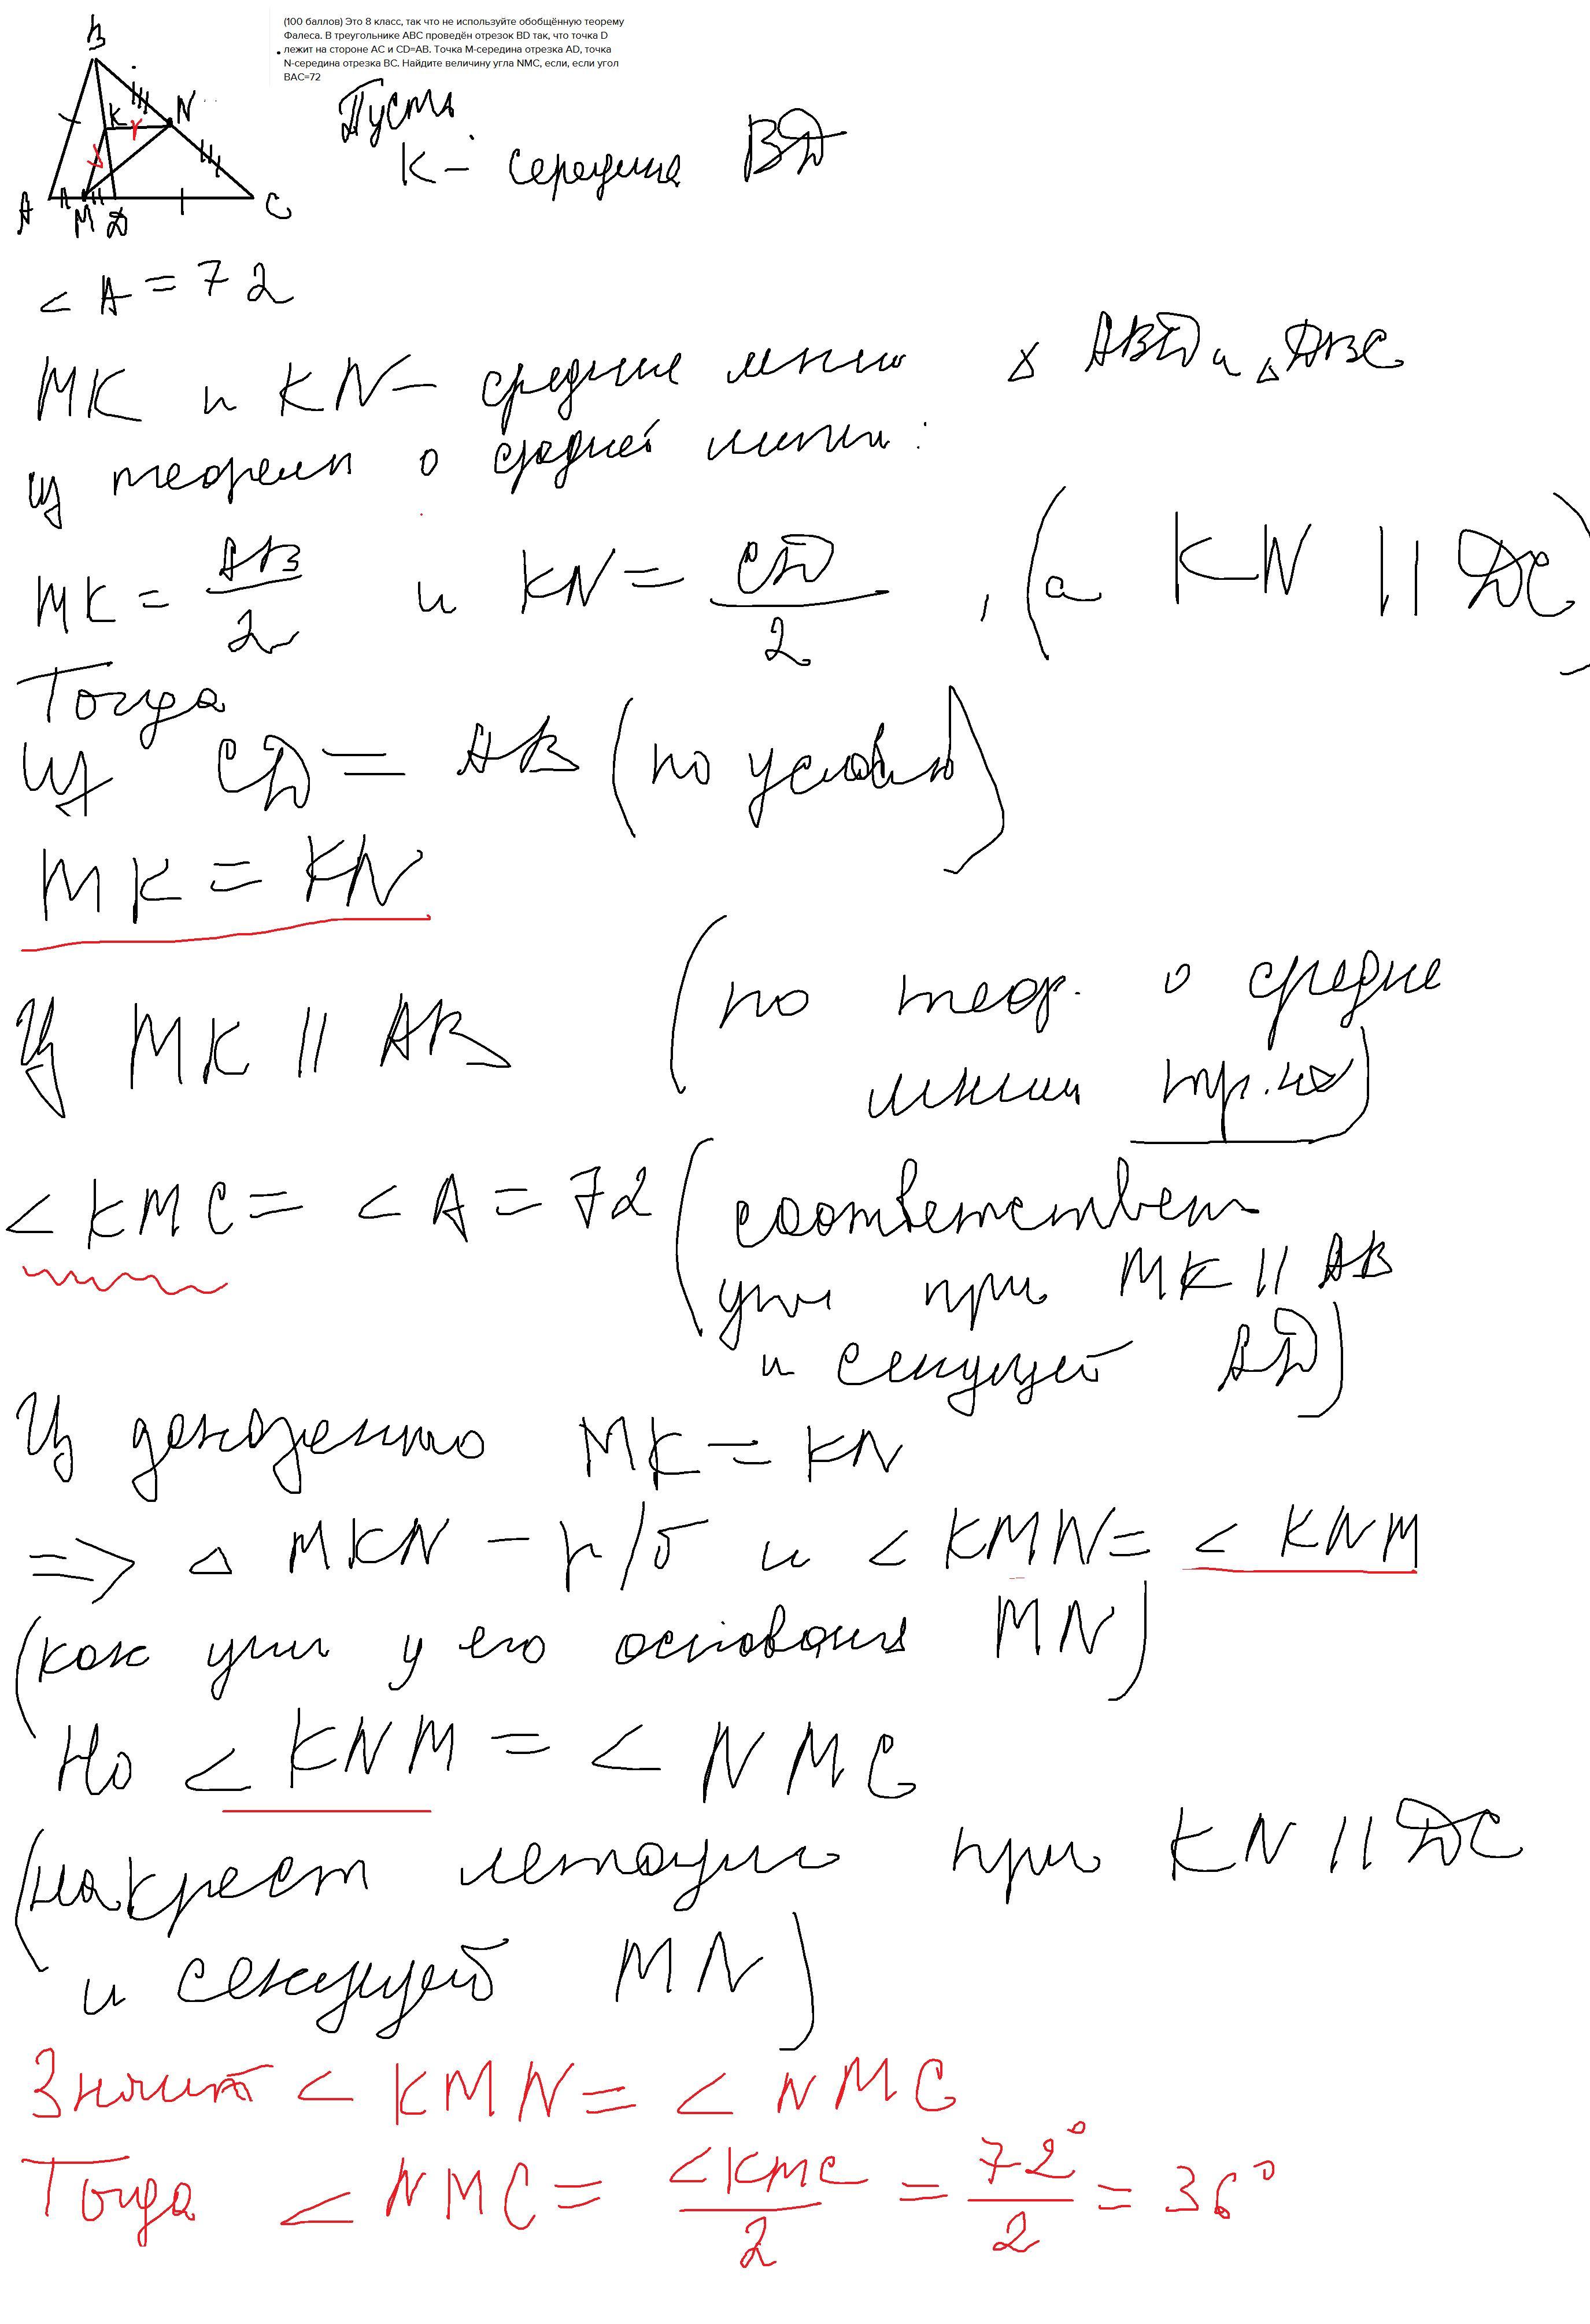 (100 баллов) Это 8 класс, так что не используйте обобщённую теорему
Фалеса. В треугольнике ABC проведён отрезок BD так, что точка D
лежит на стороне AC и CD=AB. Точка M-середина отрезка AD, точка
N-середина отрезка BC. Найдите величину угла NMC, если, если угол
BAC=72
B
K N
A M D C
Пусть
K - середина BD
< A = 72
MK и KN - средние линии △ ABD и △ DBC
из теоремы о средней линии:
MK = AB/2 и KN = CD/2, (а KN || DC)
Тогда
из CD = AB (по условию)
MK = KN
Из MK || AB (по теор. о средне
линии тр.ка)
< KMC = < A = 72 (соответствен
углы при MK || AB
и секущей AD)
Из доказанного MK = KN
=> △ MKN - р/б и < KMN = < KNM
(как углы у его основания MN)
Но < KNM = < NMC
(накрест лежащие при KN || DC
и секущей MN)
Значит < KMN = < NMC
Тогда < NMC = <KMC/2 = 72°/2 = 36°